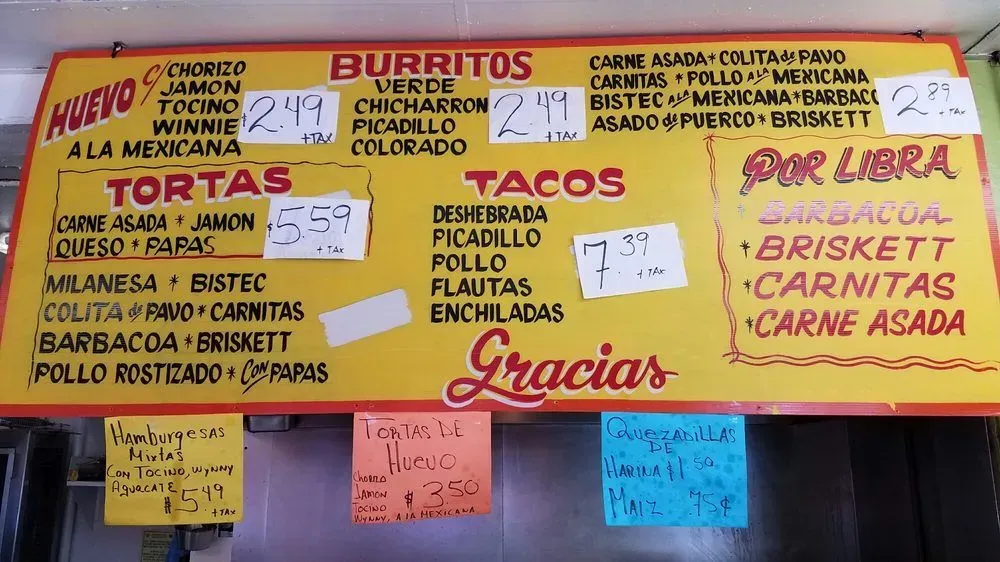 BURRITOS
HUEVO C/ CHORIZO
JAMON
TOCINO
WINNIE
A LA MEXICANA
$2.49
+TAX
VERDE
CHICHARRON
PICADILLO
COLORADO
2.49
+TAX
CARNE ASADA * COLITA de PAVO
CARNITAS * POLLO A LA MEXICANA
BISTEC A LA MEXICANA * BARBACO
ASADO de PUERCO * BRISKETT
2.89
+TAX
TORTAS
CARNE ASADA * JAMON
QUESO * PAPAS
$5.59
+TAX
MILANESA * BISTEC
COLITA de PAVO * CARNITAS
BARBACOA * BRISKETT
POLLO ROSTIZADO * CON PAPAS
TACOS
DESHEBRADA
PICADILLO
POLLO
FLAUTAS
ENCHILADAS
7.39
+TAX
POR LIBRA
* BARBACOA
* BRISKETT
* CARNITAS
* CARNE ASADA
Gracias
HAMBURGESAS
MIXTAS
CON TOCINO, WYNNY
AGUACATE
$5.49
+TAX
TORTAS DE
HUEVO
CHORIZO
JAMON
TOCINO
$3.50
WYNNY, A LA MEXICANA.
QUEZADILLAS
DE
HARINA $1.50
MAIZ .75¢